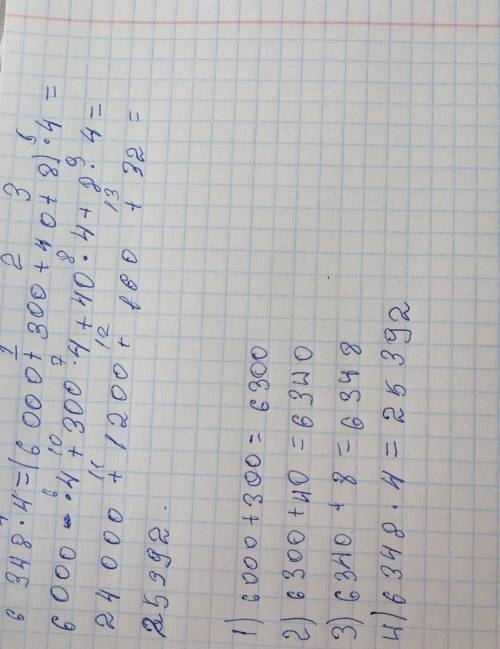 6 348 · 4 = (6 000 + 300 + 40 + 8) · 4 =
6 000 · 4 + 300 · 4 + 40 · 4 + 8 · 4 =
24 000 + 1200 + 160 + 32 =
25392.
1) 6000 + 300 = 6300
2) 6300 + 40 = 6340
3) 6340 + 8 = 6348
4) 6348 · 4 = 25 392